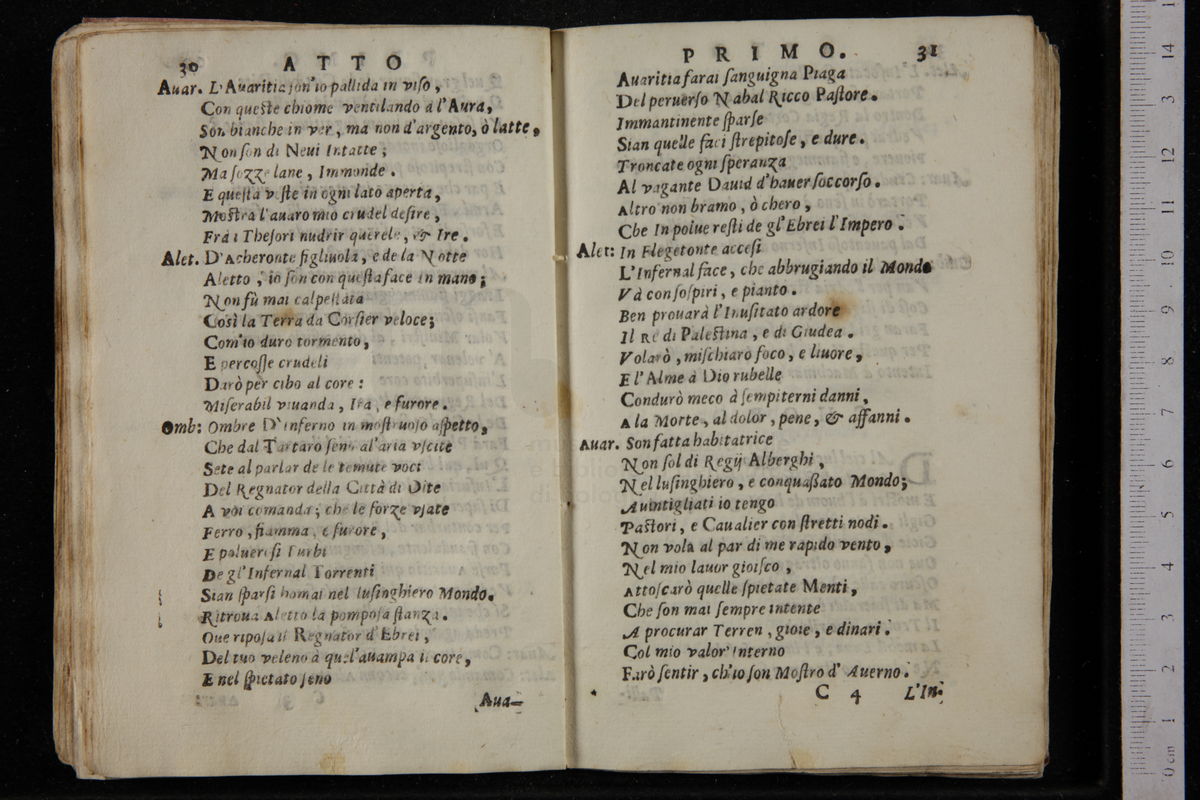 30 ATTO
Avar. L'Avaritia son'io pallida in viso,
Con queste chiome ventilando a l'Aura,
Son bianche in ver, ma non d'argento, ò latte,
Non son di Nevi Intatte;
Ma sozze lane, Immonde.
E questa veste in ogni lato aperta,
Mostra l'auaro mio crudel desire,
Frà i Thesori nudrir querele, & Ire.
Alet. D'Acheronte figliuola, e de la Notte
Aletto, io son con questa face in mano;
Non fù mai calpestata
Così la Terra da Corsier veloce;
Com'io duro tormento,
E percosse crudeli
Darò per cibo al core:
Miserabil viuanda, Ira, e furore.
Omb: Ombre D'inferno in mostruoso aspetto,
Che dal Tartaro seno al'aria vscite
Sete al parlar de le temute voci
Del Regnator della Città di Dite
A voi comanda; che le forze vsate
Ferro, fiamma, e furore,
E polueresi Turbi
De gl'Infernal Torrenti
Sian sparsi homai nel lusinghiero Mondo.
Ritroua Aletto la pomposa stanza.
Oue riposa il Regnator d'Ebrei,
Del tuo veleno à quel'auampa il core,
E nel spietato seno
Aua-
PRIMO. 31
Auaritia farai sanguigna Piaga
Del peruerso Nabal Ricco Pastore.
Immantinente sparse
Sian quelle faci strepitose, e dure.
Troncate ogni speranza
Al vagante Dauid d'hauer soccorso.
Altro non bramo, ò chero,
Che In polue resti de gl'Ebrei l'Impero.
Alet: In Flegetonte accesi
L'Infernal face, che abbrugiando il Mondo
Và con sospiri, e pianto.
Ben prouarà l'Inusitato ardore
Il Rè di Palestina, e di Giudea.
Volarò, mischiarò foco, e liuore,
E l'Alme à Dio rubelle
Condurò meco à sempiterni danni,
A la Morte, al dolor, pene, & affanni.
Auar. Son fatta habitatrice
Non sol di Regij Alberghi,
Nel lusinghiero, e conquassato Mondo;
Auintigliati io tengo
Pastori, e Caualier con stretti nodi.
Non vola al par di me rapido vento,
Nel mio lauor gioisco,
Attoscarò quelle spietate Menti,
Che son mai sempre intente
A procurar Terren, gioie, e dinari.
Col mio valor'Interno
Farò sentir, ch'io son Mostro d'Auerno.
C 4 L'In-